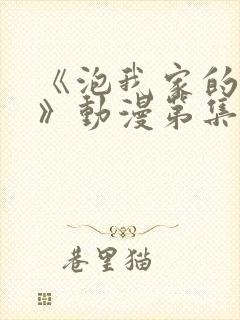 《泡我家的
》動漫第集
巷里猫